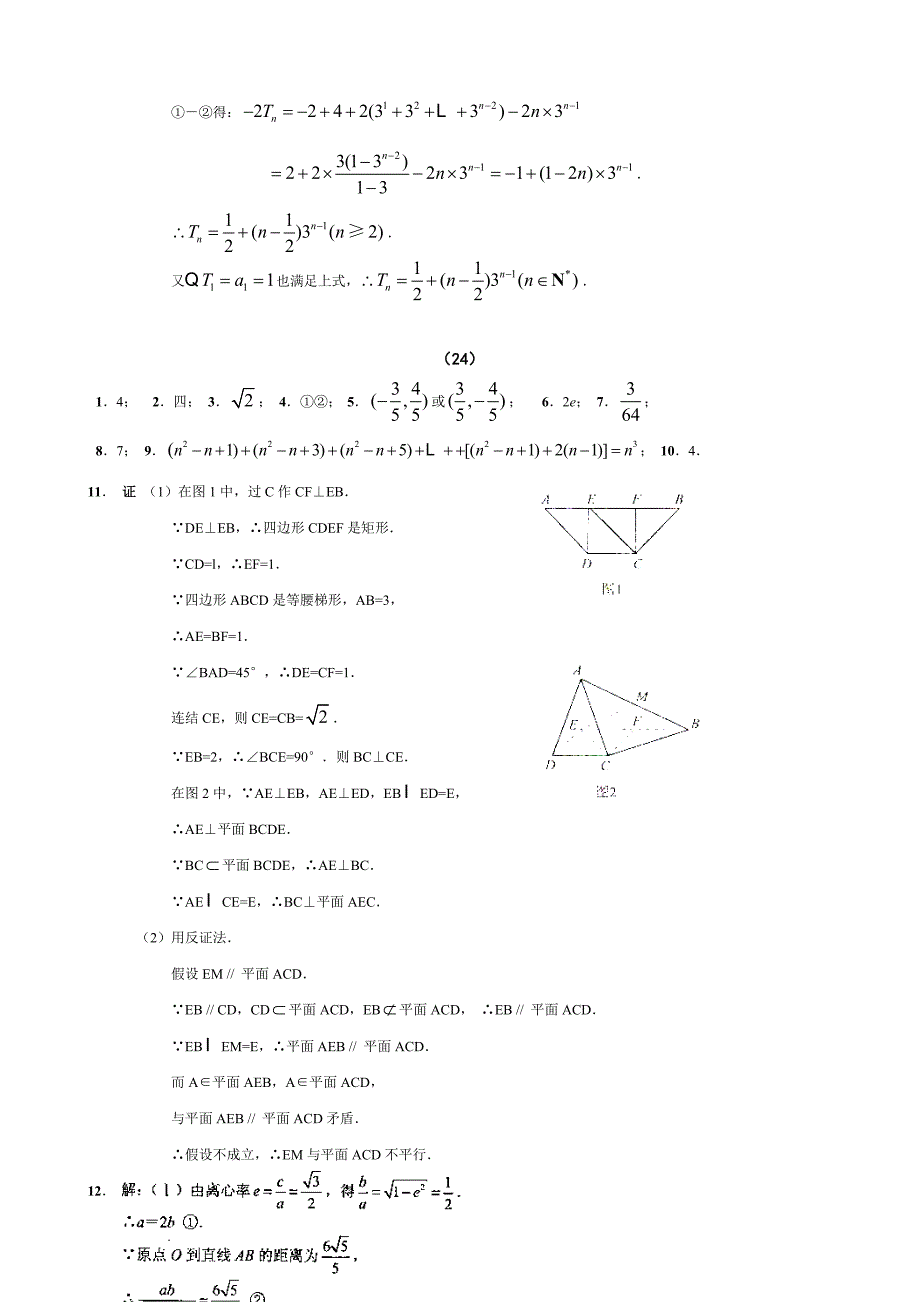 ①－②得：−2Tₙ = −2 + 4 + 2(3¹ + 3² + L + 3ⁿ⁻²) − 2n × 3ⁿ⁻¹
= 2 + 2 × 3(1 − 3ⁿ⁻²)/(1 − 3) − 2n × 3ⁿ⁻¹ = −1 + (1 − 2n) × 3ⁿ⁻¹．
∴Tₙ = 1/2 + (n − 1/2)3ⁿ⁻¹(n ≥ 2)．
又Q T₁ = a₁ = 1也满足上式，∴Tₙ = 1/2 + (n − 1/2)3ⁿ⁻¹(n ∈ N*)．
（24）
1．4； 2．四； 3．√2； 4．①②； 5．(−3/5, 4/5)或(3/5, −4/5)； 6．2e； 7．3/64；
8．7； 9．(n² − n + 1) + (n² − n + 3) + (n² − n + 5) + L + +[(n² − n + 1) + 2(n − 1)] = n³； 10．4．
11． 证 （1）在图1中，过C作CF⊥EB．
A E F B
∵DE⊥EB，∴四边形CDEF是矩形．
D C
∵CD=l，∴EF=1．
图1
∵四边形ABCD是等腰梯形，AB=3，
∴AE=BF=1．
∵∠BAD=45°，∴DE=CF=1．
A
M
连结CE，则CE=CB=√2．
E F B
∵EB=2，∴∠BCE=90°．则BC⊥CE．
D C
在图2中，∵AE⊥EB，AE⊥ED，EB I ED=E，
图2
∴AE⊥平面BCDE．
∵BC⊂平面BCDE，∴AE⊥BC．
∵AE I CE=E，∴BC⊥平面AEC．
（2）用反证法．
假设EM // 平面ACD．
∵EB // CD，CD⊂平面ACD，EB⊄平面ACD， ∴EB // 平面ACD．
∵EB I EM=E，∴平面AEB // 平面ACD．
而A∈平面AEB，A∈平面ACD，
与平面AEB // 平面ACD矛盾．
∴假设不成立，∴EM与平面ACD不平行．
12． 解：(1)由离心率e=c/a=√3/2，得b/a=√(1−e²)=1/2．
∴a=2b ①.
∵原点O到直线AB的距离为6√5/5，